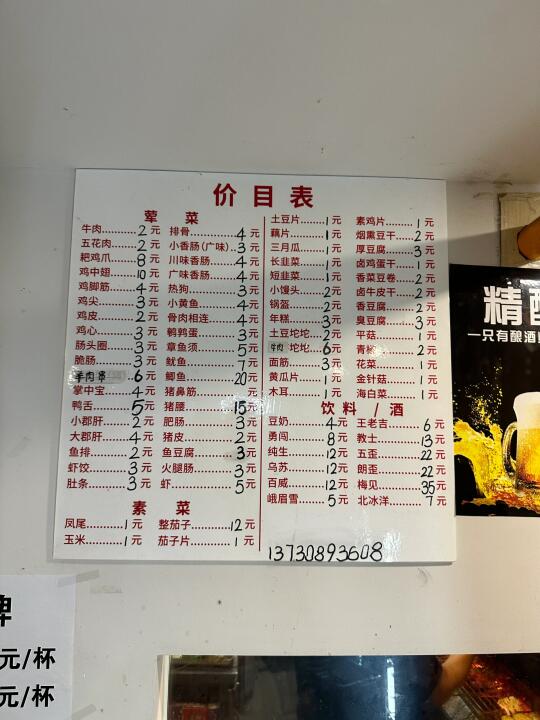 价目表
荤 菜
牛肉........2元
五花肉........2元
耙鸡爪........8元
鸡中翅........10元
鸡脚筋........4元
鸡尖........3元
鸡皮........2元
鸡心........3元
肠头圈........3元
脆肠........3元
羊肉串 6元
掌中宝........4元
鸭舌........5元
小郡肝........2元
大郡肝........4元
鱼排........2元
虾饺........3元
肚条........3元
排骨........4元
小香肠(广味)..3元
川味香肠........4元
广味香肠........4元
热狗........3元
小黄鱼........4元
骨肉相连........4元
鹌鹑蛋........3元
章鱼须........5元
鱿鱼........7元
鲫鱼........20元
猪鼻筋........元
猪腰........15元
肥肠........3元
猪皮........2元
鱼豆腐........3元
火腿肠........3元
虾........5元
素 菜
凤尾........1元
玉米........1元
整茄子........12元
茄子片........1元
土豆片........1元
藕片........1元
三月瓜........1元
长韭菜........1元
短韭菜........1元
小馒头........2元
锅盔........2元
年糕........3元
土豆坨坨..2元
牛肉 坨坨..6元
面筋........3元
黄瓜片........1元
木耳........1元
素鸡片........1元
烟熏豆干..2元
厚豆腐........3元
卤鸡蛋干..1元
香菜豆卷..2元
卤牛皮干..2元
香豆腐........2元
臭豆腐........3元
平菇........1元
青椒........2元
花菜........1元
金针菇........1元
海白菜........1元
饮料 / 酒
豆奶........4元
勇闯........8元
纯生........12元
乌苏........12元
百威........12元
峨眉雪........5元
王老吉........6元
教士........13元
五歪........22元
朗歪........22元
梅见........35元
北冰洋........7元
13730893608
精酿
一只有酿酒
牌
元/杯
元/杯